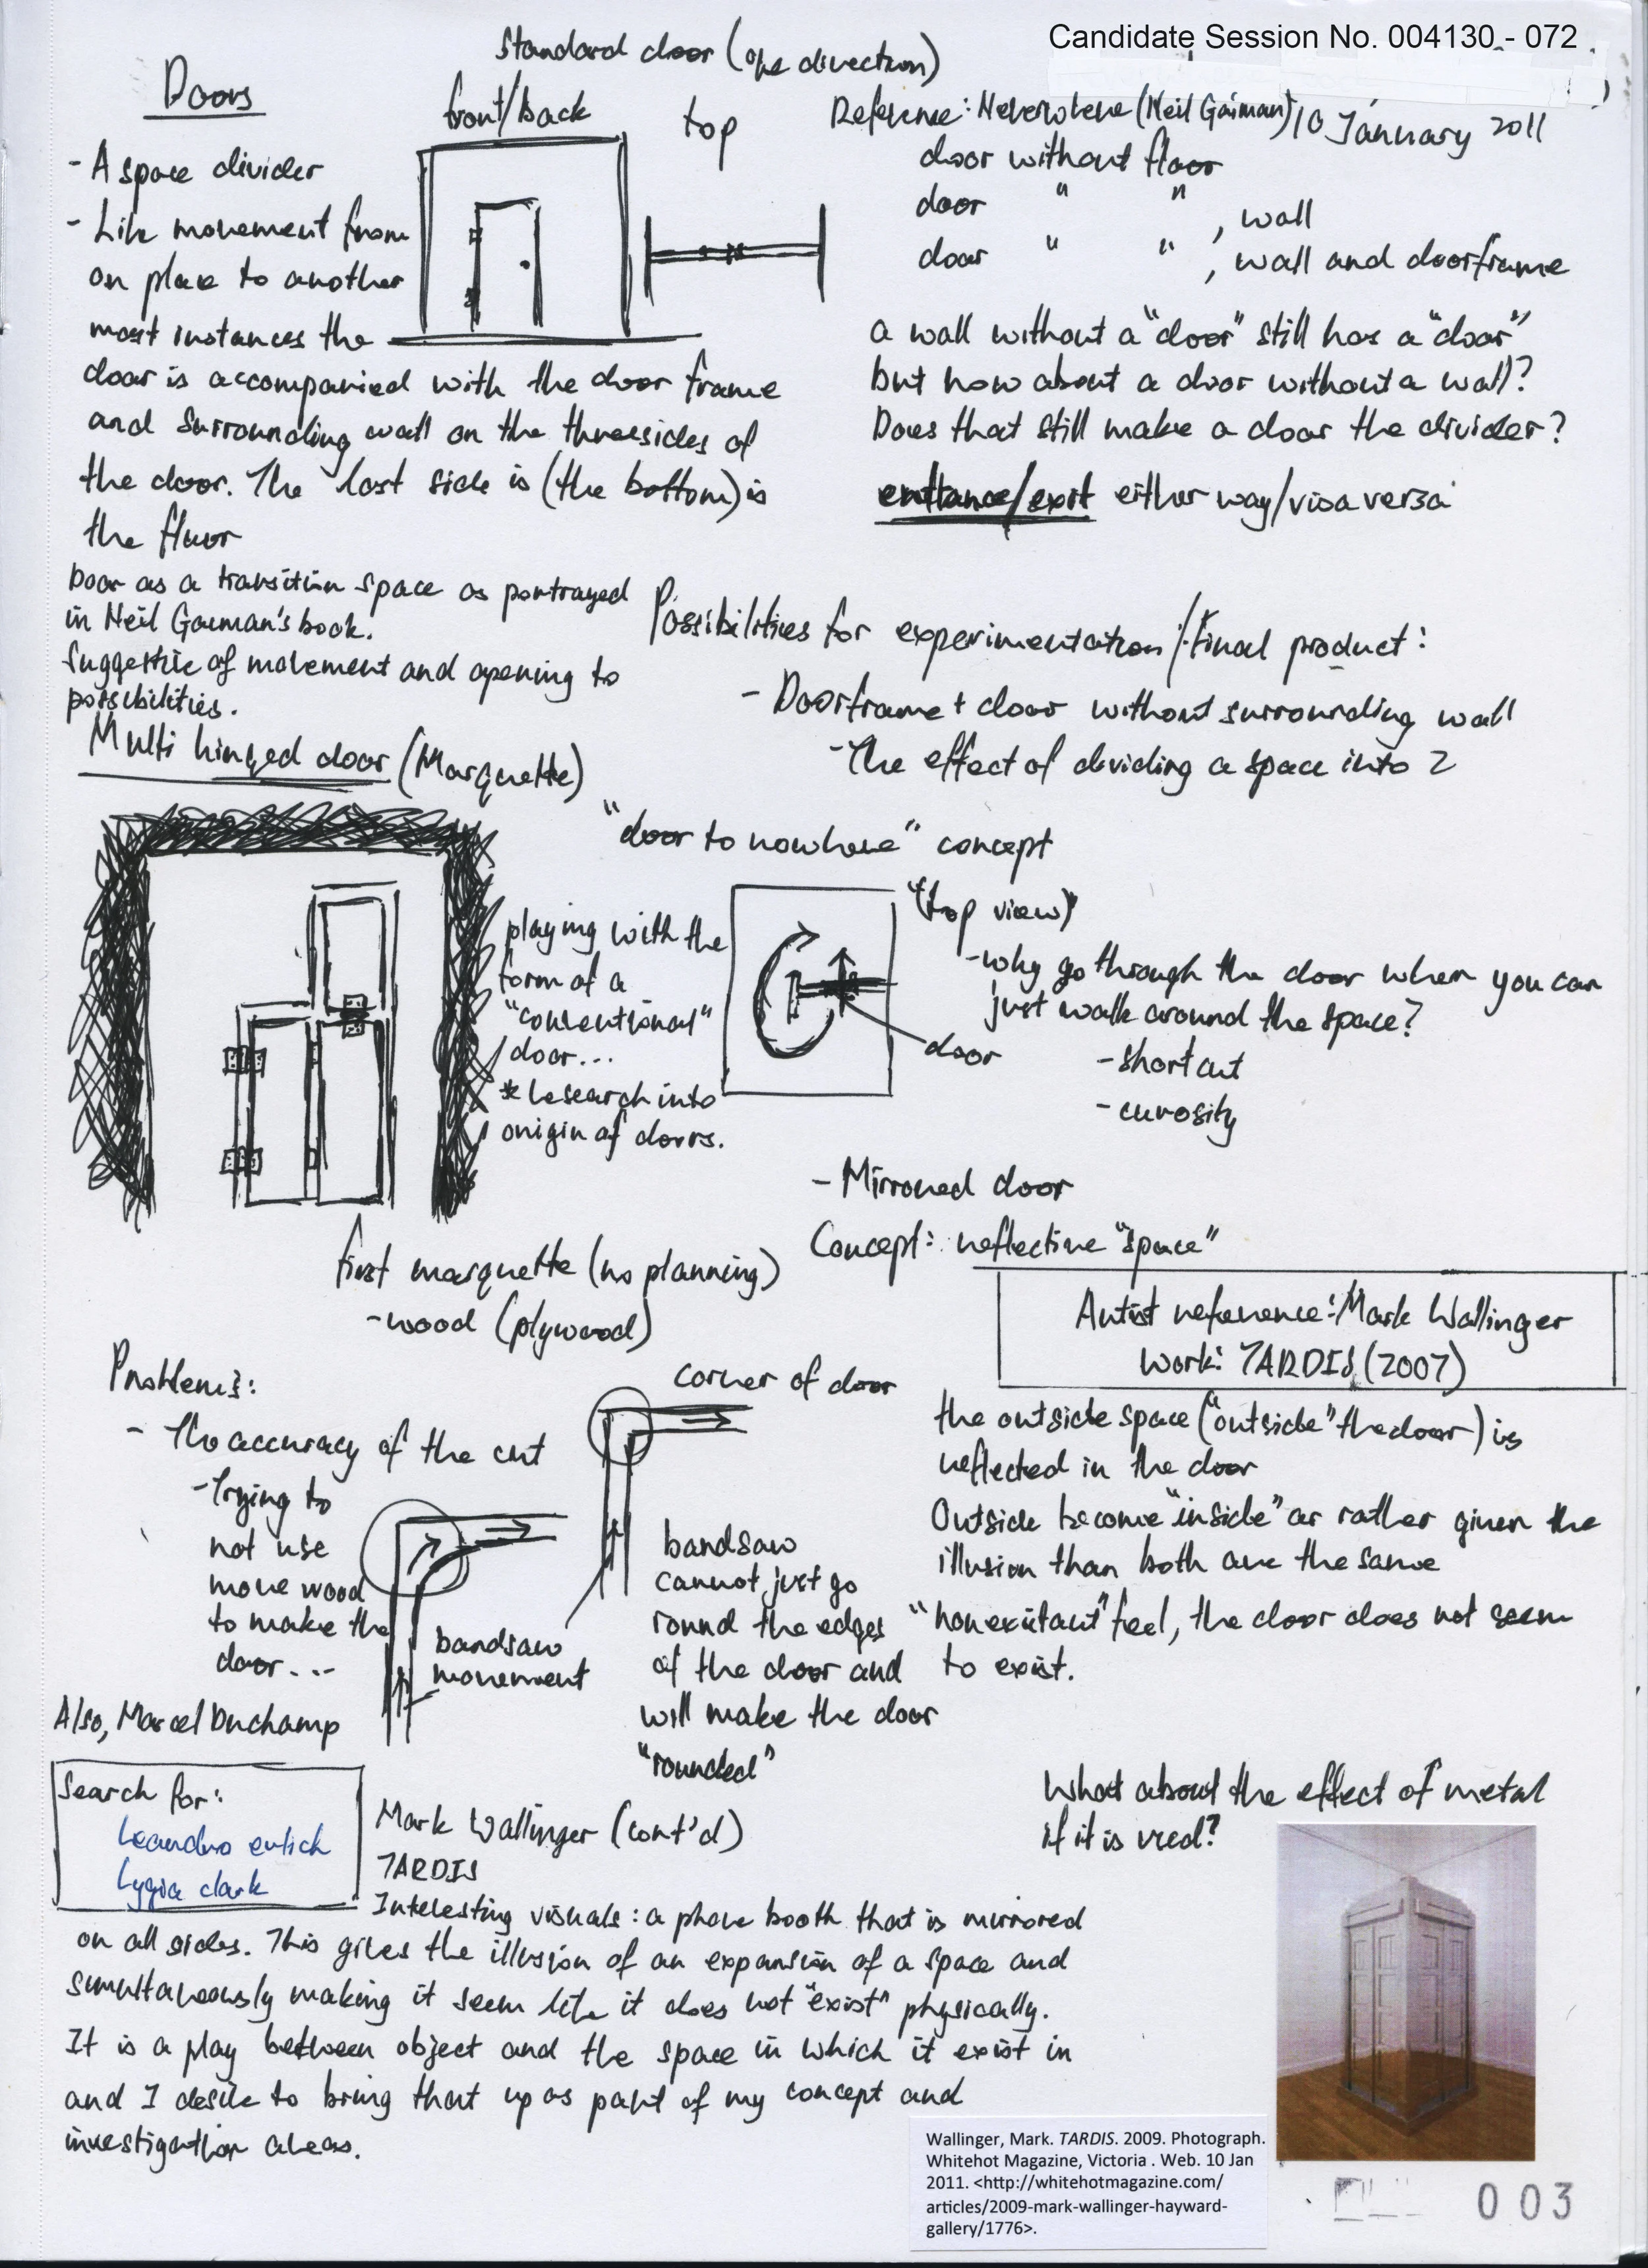 Candidate Session No. 004130 - 072
Doors
Standard door (one direction)
front/back
top
- A space divider
- Like movement from
on place to another
most instances the
door is accompanied with the door frame
and surrounding wall on the three sides of
the door. The last side is (the bottom) is
the floor
Door as a transition space as portrayed
in Neil Gaiman's book.
Suggestive of movement and opening to
possibilities.
Reference: Neverwhere (Neil Gaiman)
10 January 2011
door without floor
door " " , wall
door " " , wall and doorframe
a wall without a "door" still has a "door"
but how about a door without a wall?
Does that still make a door the divider?
entrance/exit either way/visa versa
Possibilities for experimentation/Final product:
- Doorframe + door without surrounding wall
- The effect of dividing a space into 2
Multi hinged door (Marquette)
playing with the
form of a
"conventional"
door...
* Research into
origin of doors.
first marquette (no planning)
- wood (plywood)
"door to nowhere" concept
"(top view)"
- why go through the door when you can
just walk around the space?
door
- short cut
- curosity
- Mirrored door
Concept: reflective "space"
Artist reference: Mark Wallinger
Work: TARDIS (2007)
the outside space ("outside" the door) is
reflected in the door
Outside become "inside" or rather given the
illusion than both are the same
"nonexistant" feel, the door does not seem
to exist.
Problems:
- The accuracy of the cut
- Trying to
not use
more wood
to make the
door...
bandsaw
movement
corner of door
bandsaw
cannot just go
round the edges
of the door and
will make the door
"rounded"
Also, Marcel Duchamp
Search for:
Leandro erlich
Lygia clark
What about the effect of metal
if it is used?
Mark Wallinger (cont'd)
TARDIS
Interesting visuals: a phone booth that is mirrored
on all sides. This gives the illusion of an expansion of a space and
simultaneously making it seem like it does not "exist" physically.
It is a play between object and the space in which it exist in
and I desire to bring that up as part of my concept and
investigation areas.
Wallinger, Mark. TARDIS. 2009. Photograph.
Whitehot Magazine, Victoria . Web. 10 Jan
2011. <http://whitehotmagazine.com/
articles/2009-mark-wallinger-hayward-
gallery/1776>.
003